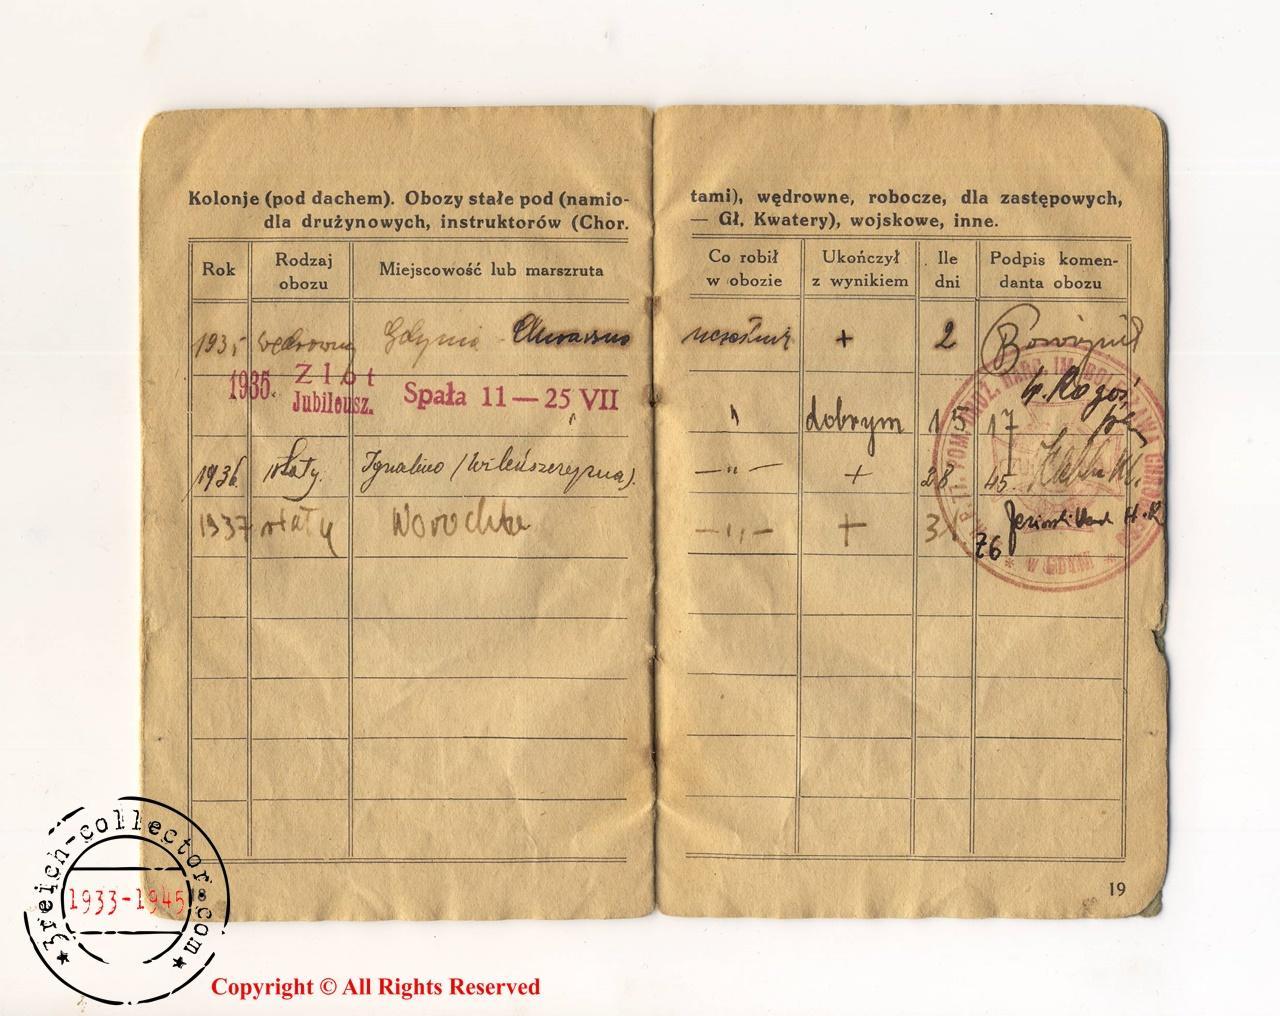 Kolonje (pod dachem). Obozy stałe pod (namio-
dla drużynowych, instruktorów (Chor.
tami), wędrowne, robocze, dla zastępowych,
— Gł. Kwatery), wojskowe, inne.
Rok
Rodzaj
obozu
Miejscowość lub marszruta
Co robił
w obozie
Ukończył
z wynikiem
Ile
dni
Podpis komen-
danta obozu
1935 wędrowny Gdynia - uczestnik + 2
1935. Zlot
Jubileusz.
Spała 11 — 25 VII
" dobrym 15 17
1936 stały. Ignalino (Wileńszczyzna). —"— + 28 45
1937 stały Worochta —"— + 31
76
W GDYNI
19
3reich-collector.com
1933-1945
Copyright © All Rights Reserved